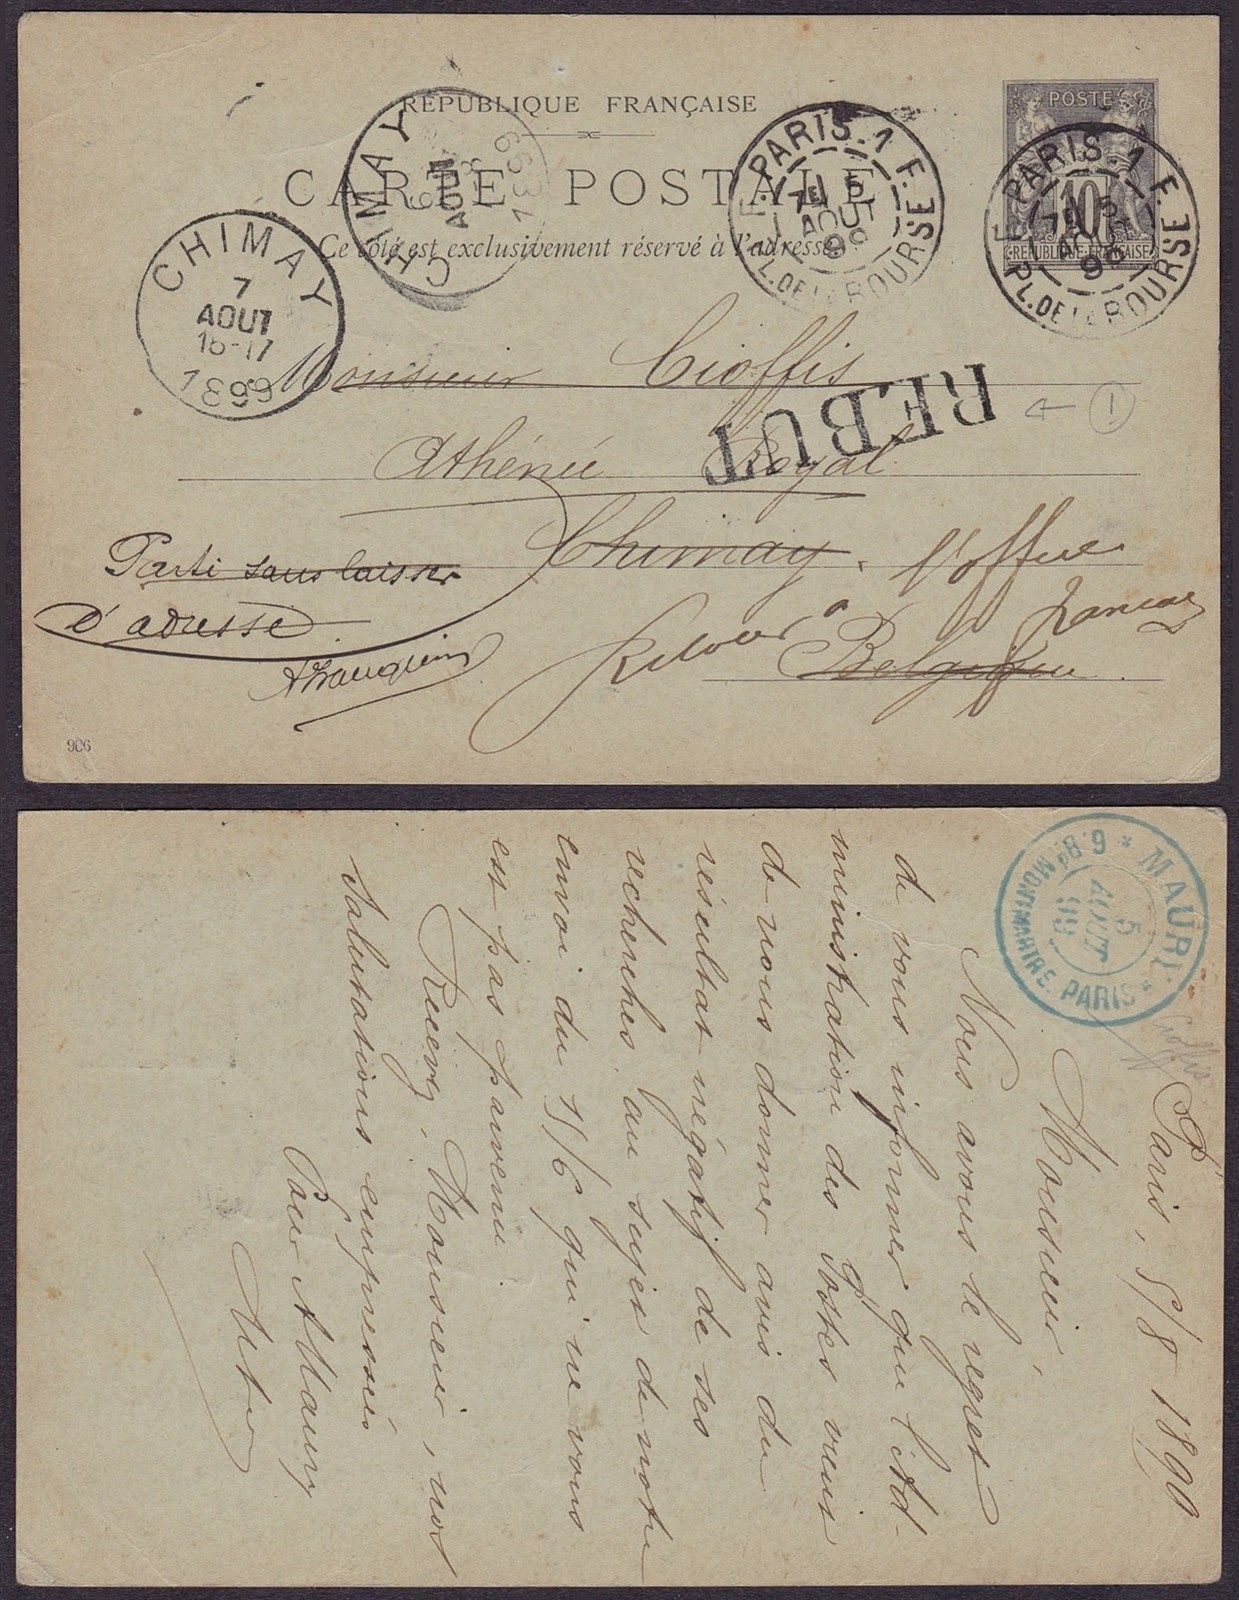 RÉPUBLIQUE FRANÇAISE
CARTE POSTALE
Ce côté est exclusivement réservé à l'adresse
POSTE
10
RÉPUBLIQUE FRANÇAISE
PARIS. 1 F.
7E 5
AOUT
99
PL. DE LA BOURSE
PARIS. 1 F.
7E 5
AOUT
99
PL. DE LA BOURSE
CHIMAY
8
AOUT
1899
CHIMAY
7
AOUT
16-17
1899
Monsieur Cioffis
REBUT
1
Athénée Royal
Chimay
Parti sans laisser
d'adresse
Retour à l'office
Français
Belgique
906
MAURY
6, Bd MONTMARTRE. PARIS
5
AOUT
99
Cioffis
Paris, 5/8 1899
Monsieur,
Nous avons le regret
de vous informer que l'Ad-
ministration des Postes vient
de nous donner avis du
résultat négatif de ses
recherches au sujet de notre
envoi du 5/6 qui ne vous
est pas parvenu.
Recevez, Monsieur, nos
Salutations empressées
Pour A Maury